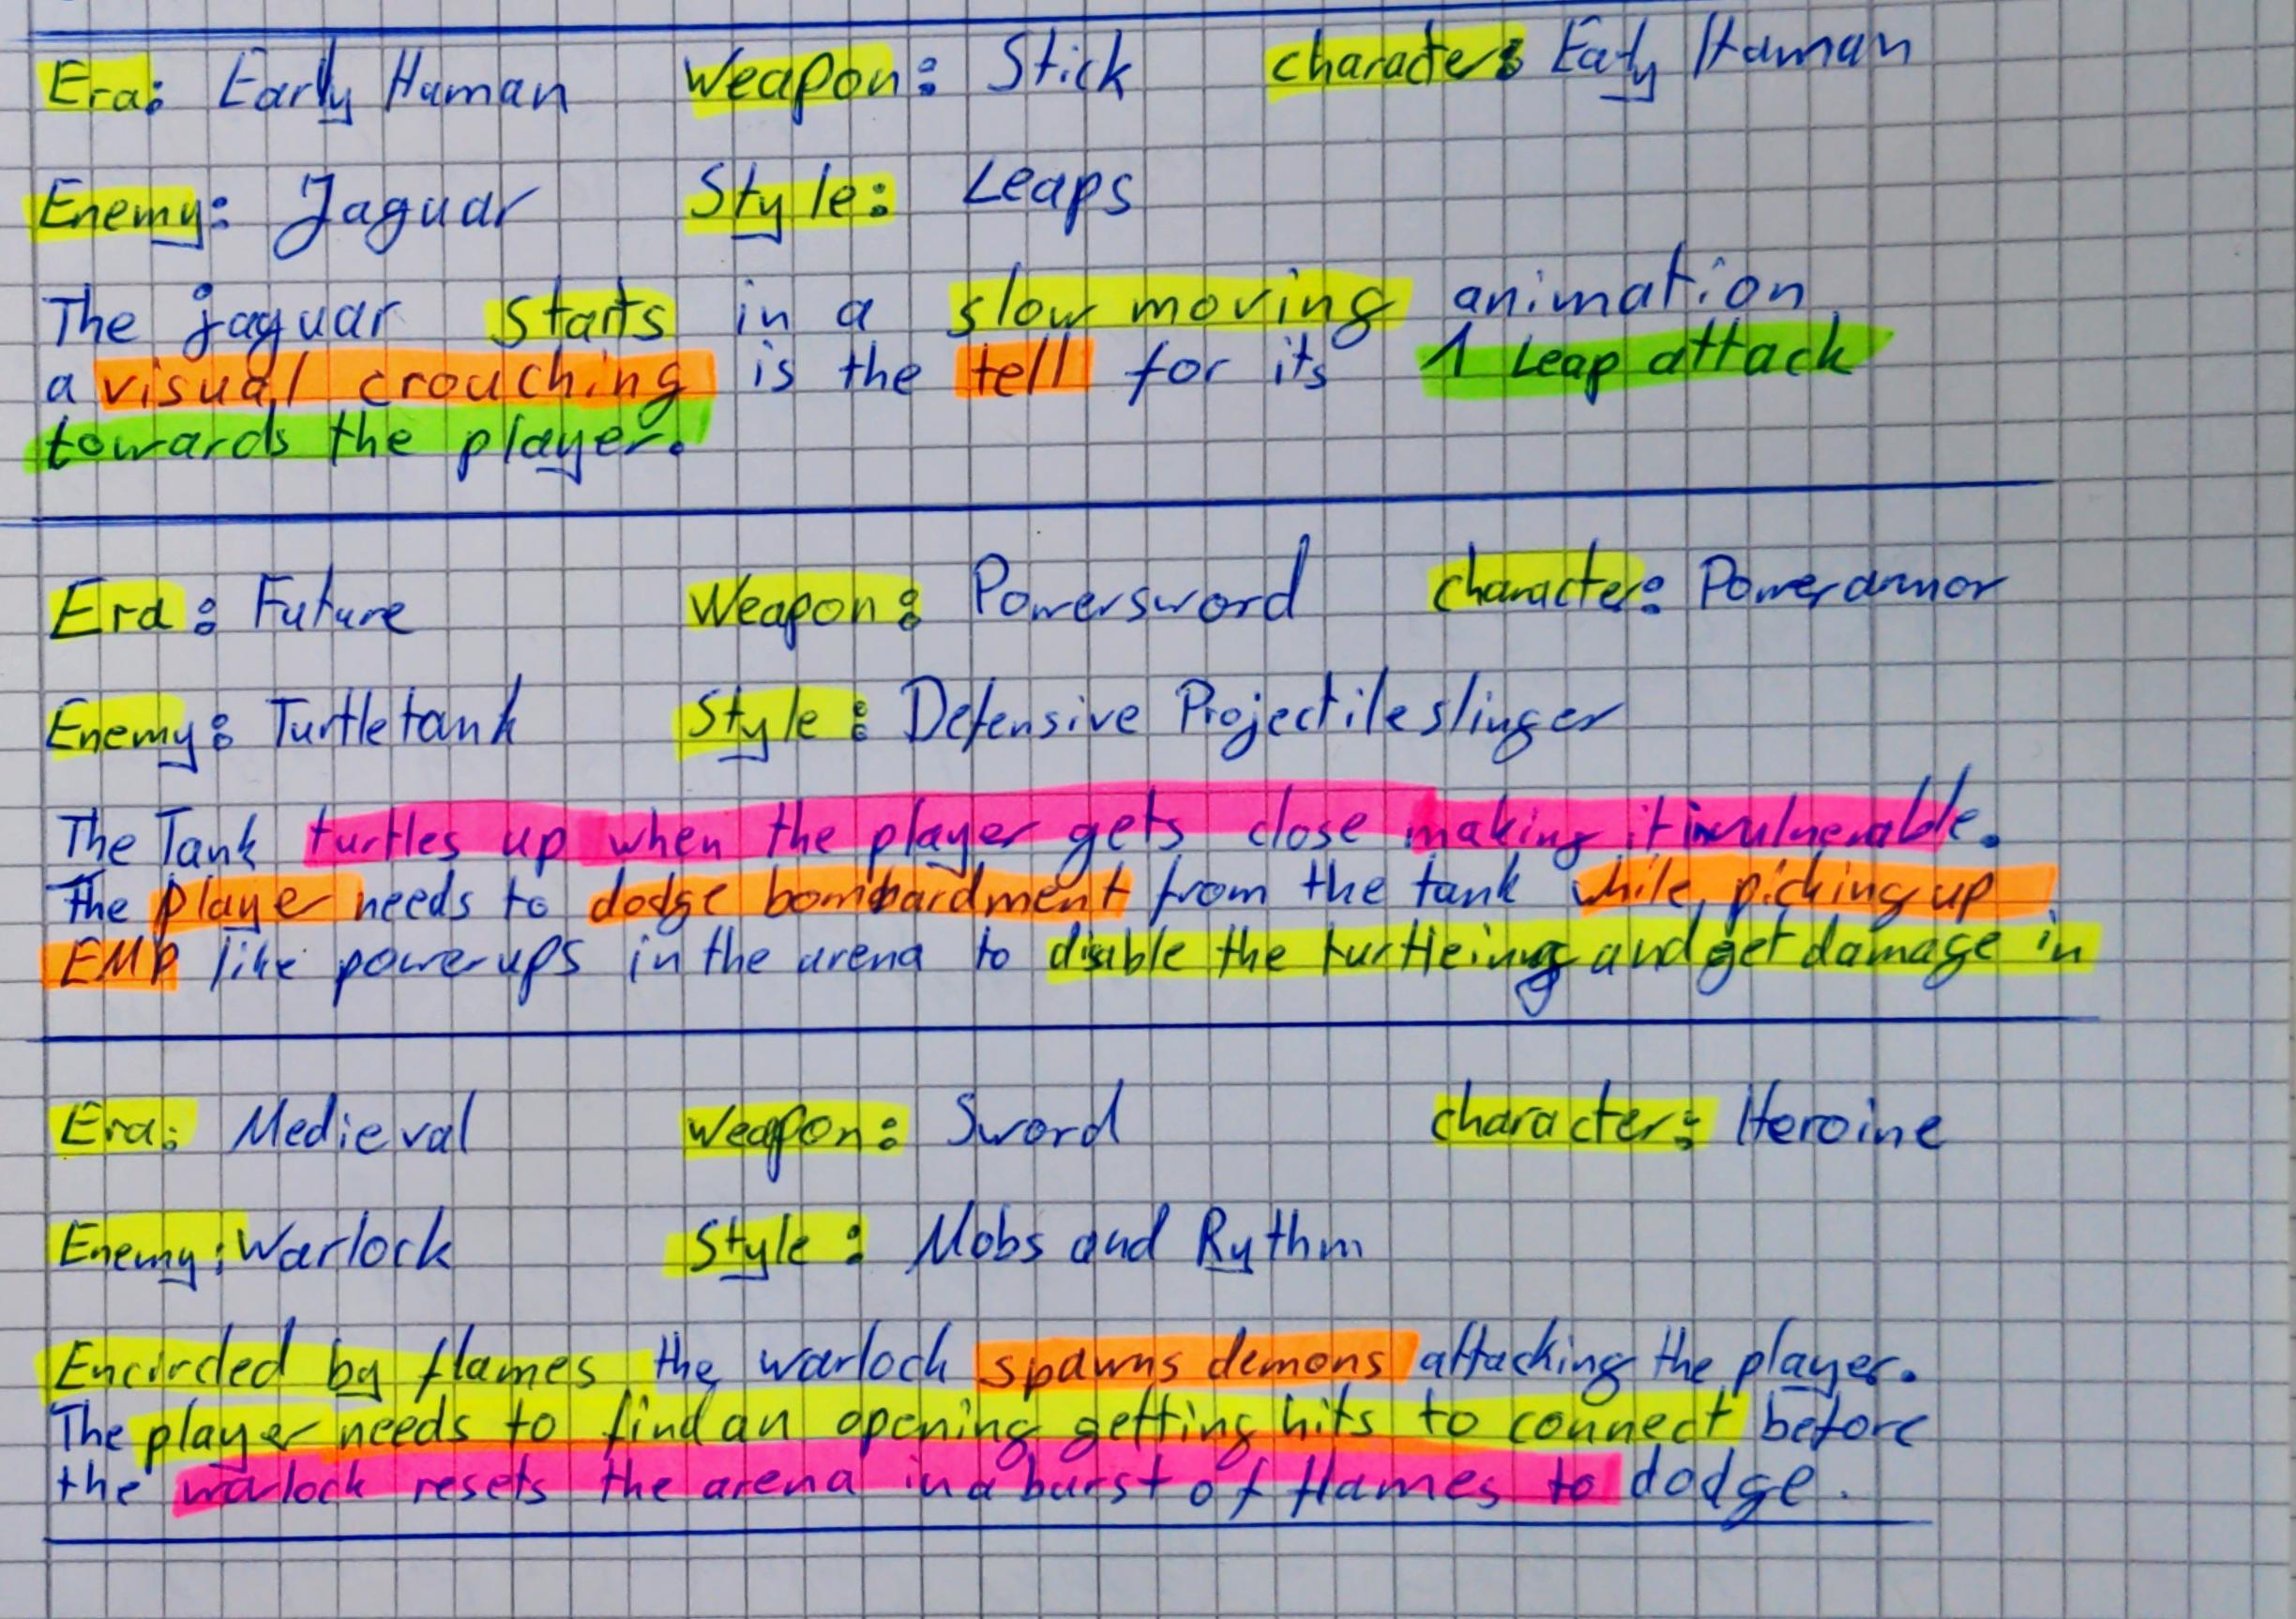 Era: Early Human Weapon: Stick character: Eaty Human
Enemy: Jaguar Style: Leaps
The jaguar starts in a slow moving animation
a visual crouching is the tell for its 1 Leap attack
towards the player.
Era: Future Weapon: Powersword character: Powerarmor
Enemy: Turtletank Style: Defensive Projectileslinger
The Tank turtles up when the player gets close making it invulnerable.
The player needs to dodge bombardment from the tank while picking up
EMP like powerups in the arena to disable the turtleing and get damage in
Era: Medieval Weapon: Sword character: Heroine
Enemy: Warlock Style: Mobs and Rythm
Encircled by flames the warlock spawns demons attacking the player.
The player needs to find an opening getting hits to connect before
the warlock resets the arena in a burst of flames to dodge.